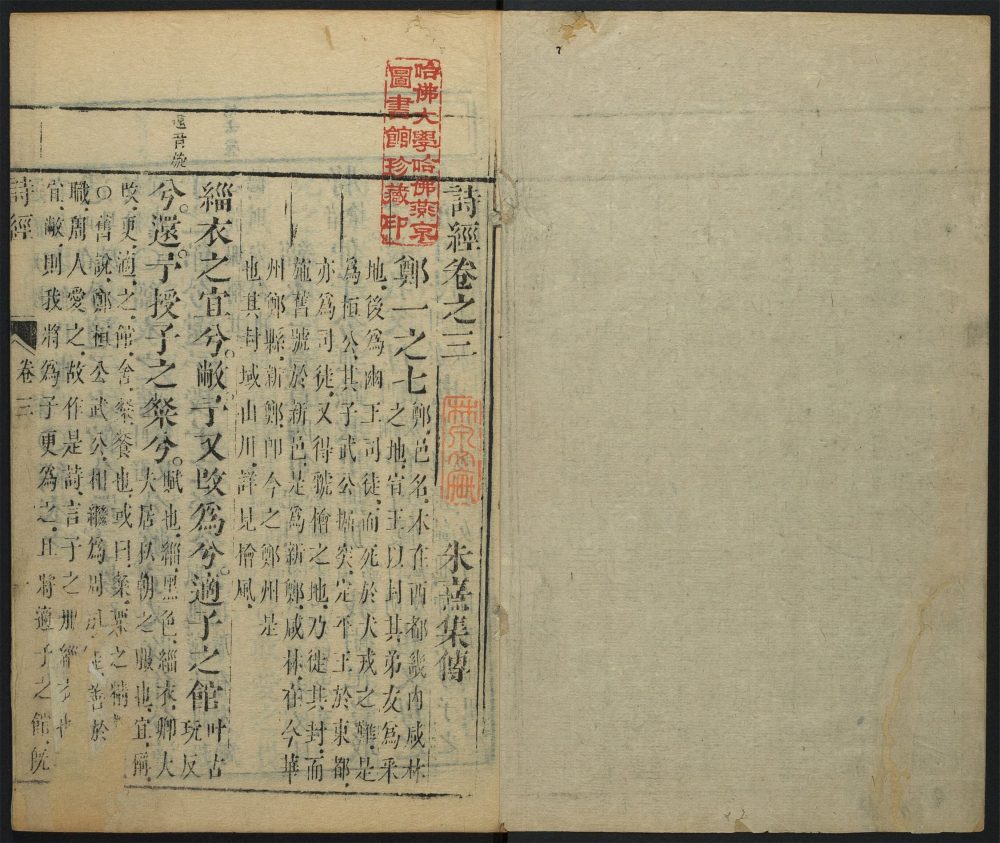 詩經卷之三
朱熹集傳
鄭一之七
鄭邑名本在西都畿內咸林
之地宣王以封其弟友為采
地後為幽王司徒而死於犬戎之難是
為桓公其子武公掘突定平王於東都
亦為司徒又得虢檜之地乃徙其封而
施舊號於新邑是為新鄭咸林在今華
州鄭縣新鄭即今之鄭州是
也其封域山川詳見檜風
緇衣之宜兮敝予又改為兮適子之館
叶古
玩反
兮還予授子之粲兮
賦也緇黑色緇衣卿大
夫居私朝之服也宜稱
改更適之館舍粲餐也或曰粲粟之精
○舊說鄭桓公武公相繼為周司徒善於
職周人愛之故作是詩言子之服緇衣也
宜敝則我將為子更為之且將適子之館既
還音旋
詩經
卷三
一
哈佛大學哈佛燕京
圖書館珍藏印
7